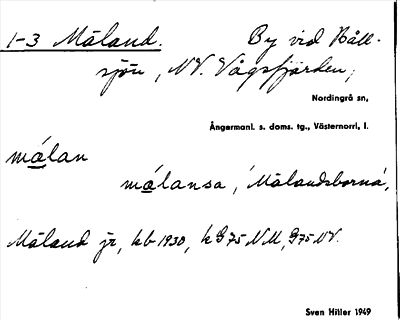 1-3 Måland. By vid Håll-
sjön, NV. Vågsfjärden;
Nordingrå sn,
Ångermanl. s. doms. tg., Västernorrl. l.
målan
målansa, 'Målandsborna',
Måland jr, kb 1930, k G75 NM, G75 NV.
Sven Hiller 1949